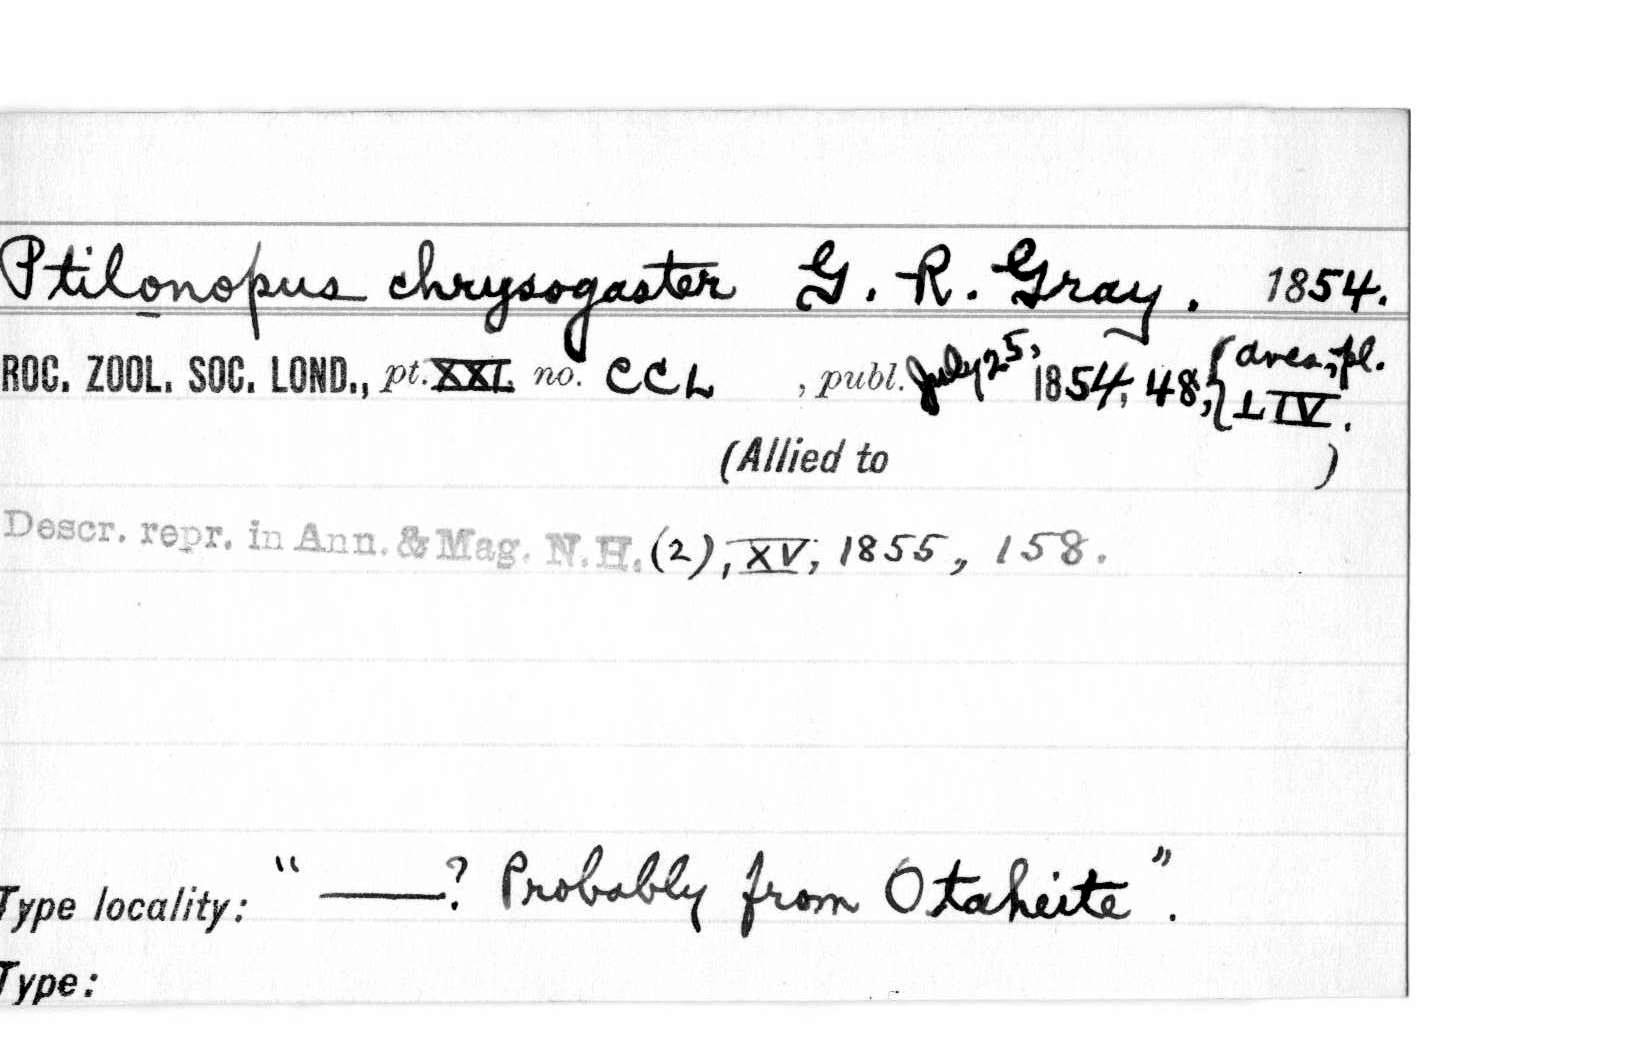 Ptilonopus chrysogaster G. R. Gray. 1854.
ROC. ZOOL. SOC. LOND., pt. XXI. no. CCL , publ. July 25, 1854, 48, { aves, pl. LIV.
(Allied to )
Descr. repr. in Ann. & Mag. N.H. (2), XV, 1855, 158.
Type locality: " ——? Probably from Otaheite".
Type: